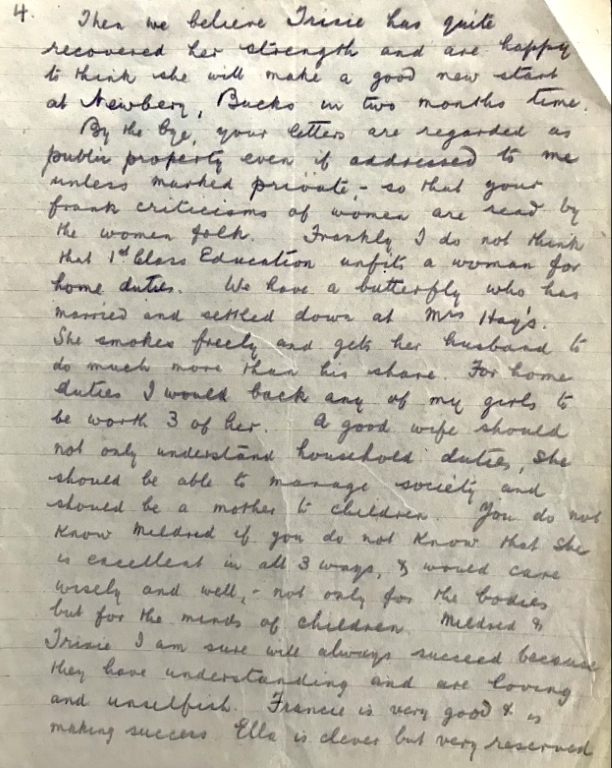 4.
Then we believe Trixie has quite
recovered her strength and are happy
to think she will make a good new start
at Newbery, Bucks in two months time.
By the bye, your letters are regarded as
public property even if addressed to me
unless marked private, - so that your
frank criticisms of women are read by
the women folk. Frankly I do not think
that 1st Class Education unfits a woman for
home duties. We have a butterfly who has
married and settled down at Mrs Hay's.
She smokes freely and gets her husband to
do much more than his share. For home
duties I would back any of my girls to
be worth 3 of her. A good wife should
not only understand household duties, she
should be able to manage society and
should be a mother to children. You do not
know Mildred if you do not know that she
is excellent in all 3 ways, & would care
wisely and well, - not only for the bodies
but for the minds of children. Mildred &
Trixie I am sure will always succeed because
they have understanding and are loving
and unselfish. Francie is very good & is
making success Ella is clever but very reserved